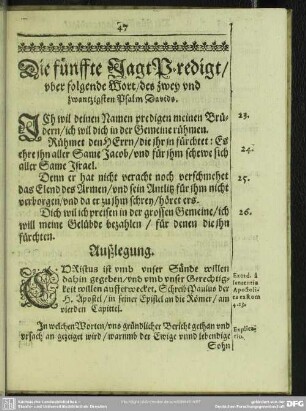 47
Die fünffte JagtPredigt/
vber folgende Wort/des zwey vnd
zwantzigsten Psalm Davids.
ICh wil deinen Namen predigen meinen Brü- 23.
dern/ich wil dich in der Gemeine rühmen.
Rühmet den HErrn/die jhr jn fürchtet: Es
ehre jhn aller Same Jacob/vnd für jhm schewe sich 24.
aller Same Israel.
Denn er hat nicht veracht noch verschmehet 25.
das Elend des Armen/vnd sein Antlitz für jhm nicht
verborgen/vnd da er zu jhm schrey/höret ers.
Dich wil ich preisen in der grossen Gemeine/ich 26.
will meine Gelübde bezahlen/ für denen die jhn
fürchten.
Außlegung.
CHRistus ist vmb vnser Sünde willen
dahin gegeben/vnd vmb vnser Gerechtig- Exord. à
keit willen aufferwecket, Schreib Paulus der sententia
H. Apostel/in seiner Epistel an die Römer/am Apostoli
vierden Capittel. 4.
In welchen Worten/vns gründlicher Bericht gethan vnd Explicatio.
vrsach an gezeiget wird/warumb der Ewige vnnd lebendige
Sohn